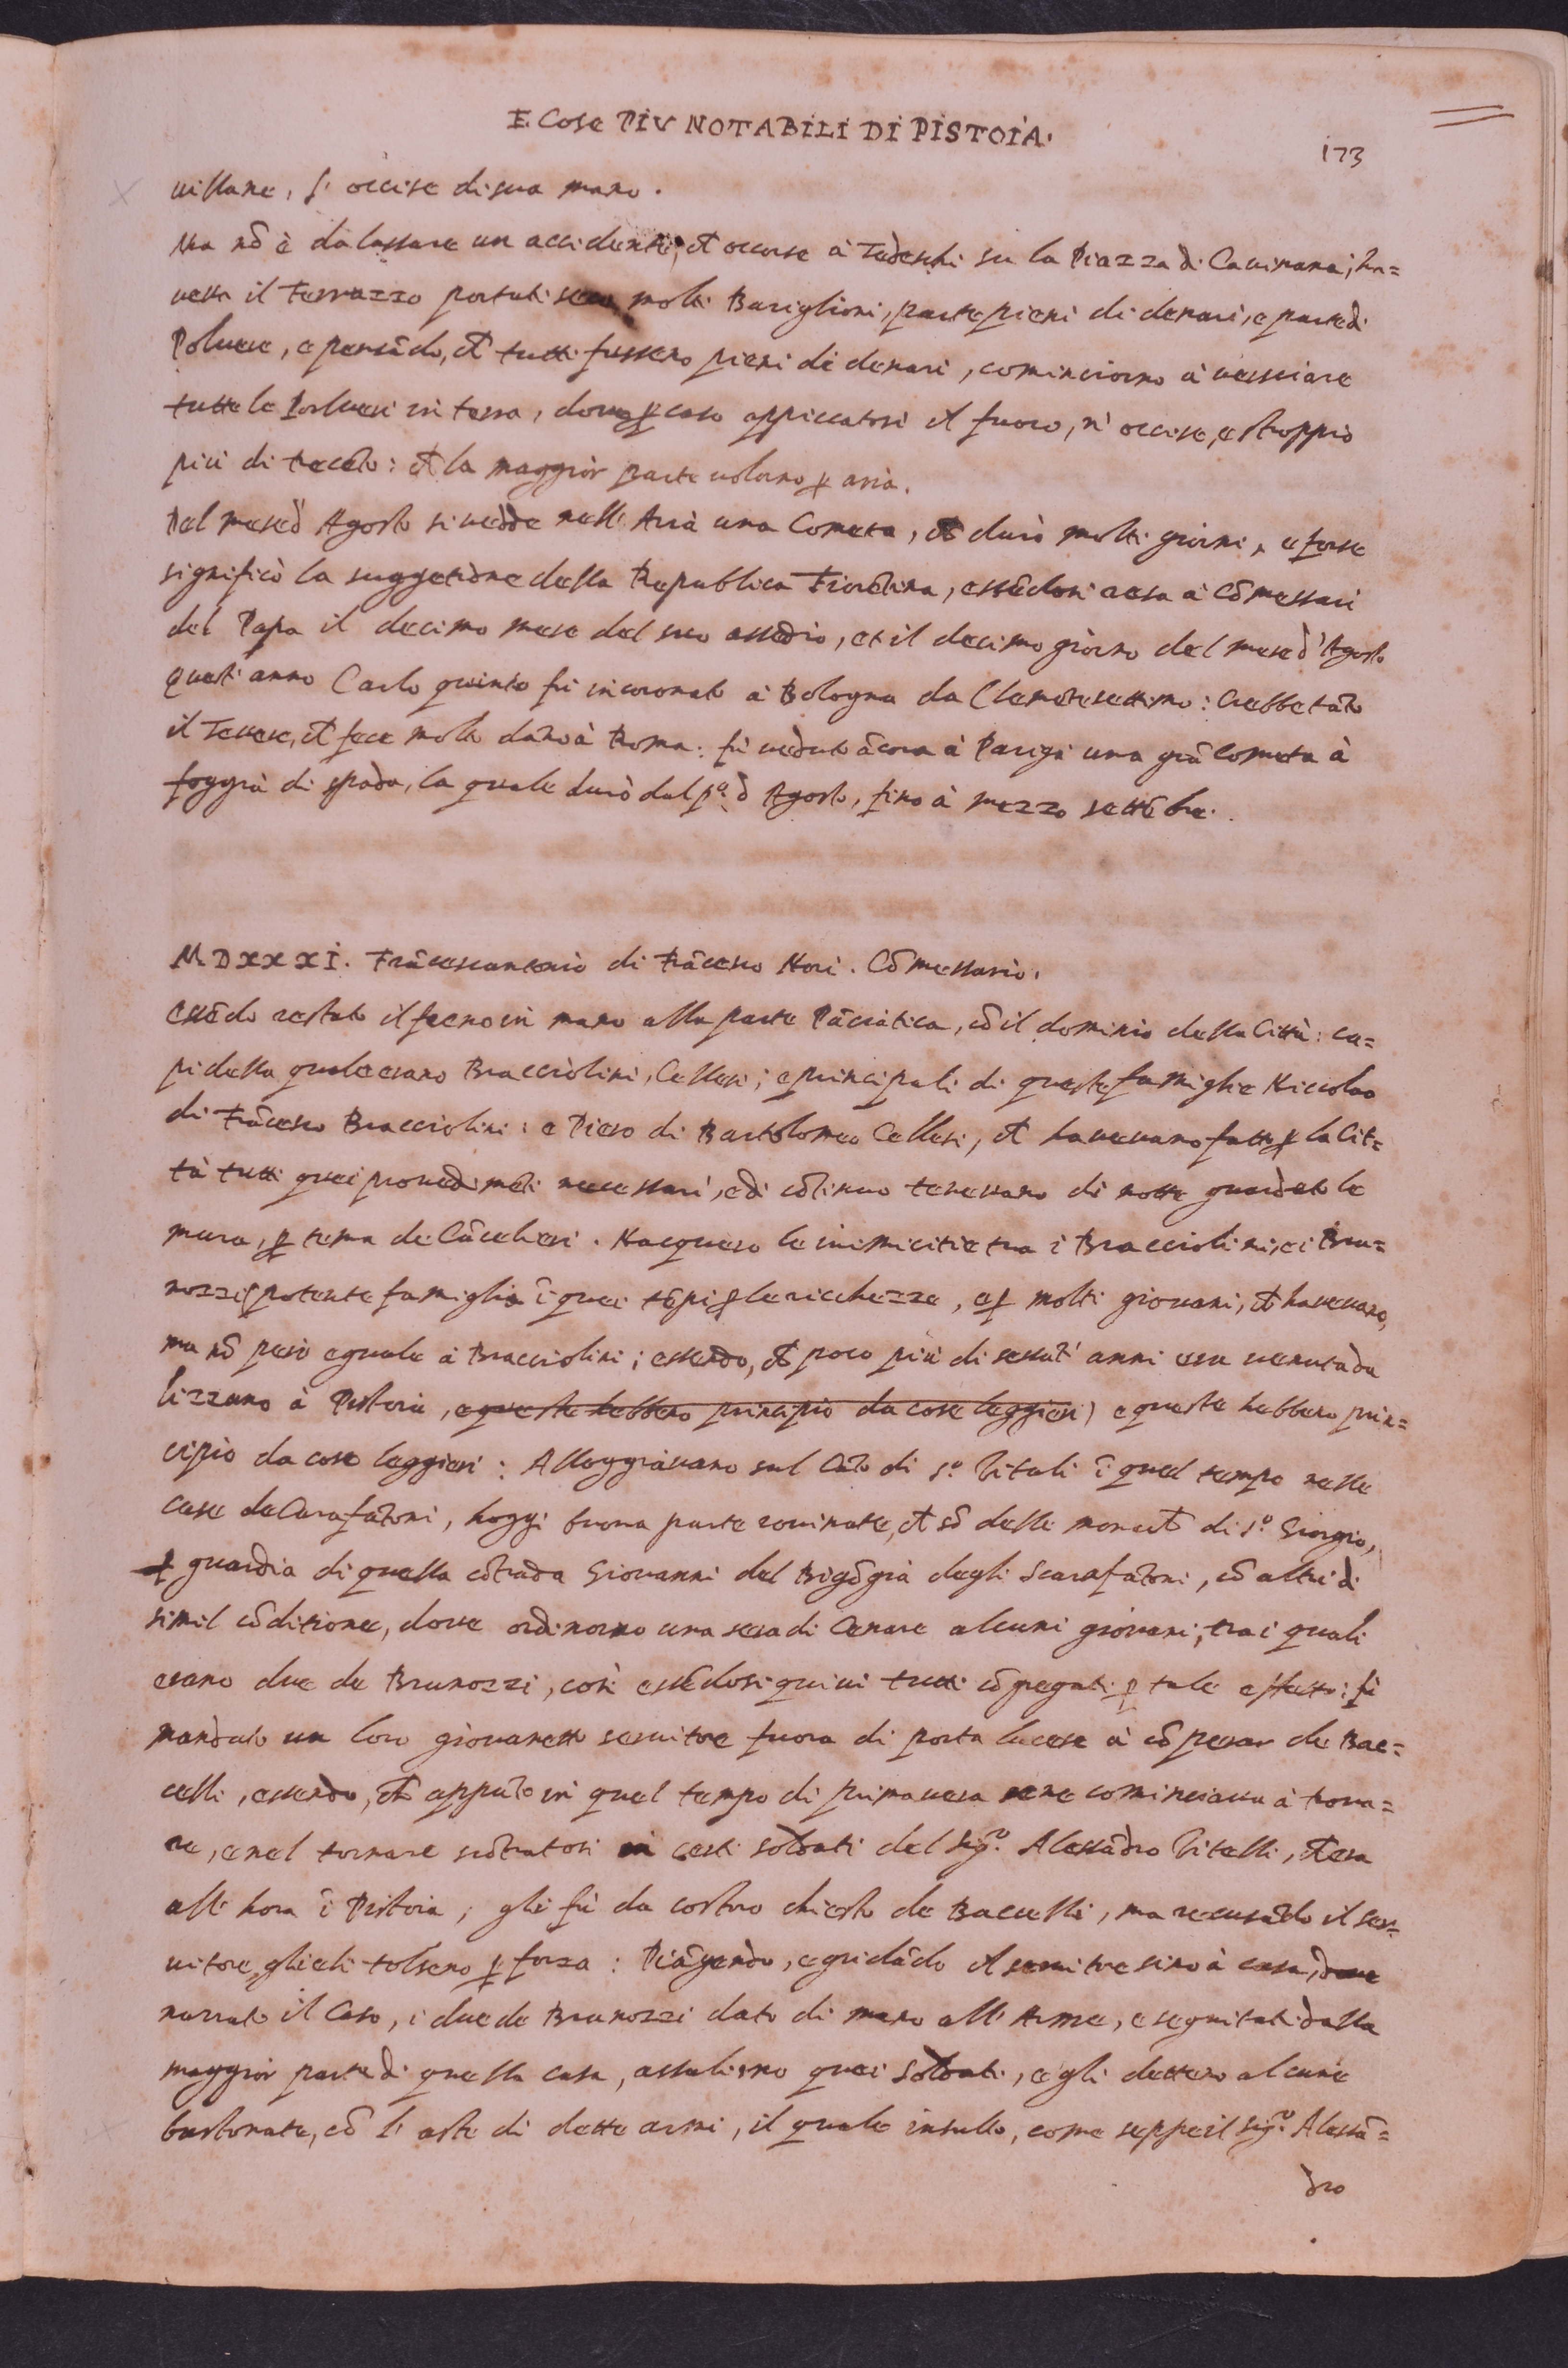 E Cose PIV NOTABILI DI PISTOIA.
173
villane, s'occise di sua mano.
Ma nō è da lassare un accidente, ch̄ occorse à Tedeschi su la Piazza di Cavinana; ha=
veva il Ferruzzo portati seco molti Bariglioni, parte pieni di denari, e parte di
Polvere, e pensādo, ch̄ tutti fussero pieni di denari, cominciorno à versciare
tutte le Polveri in terra, dove ꝑ caso appiccatosi il fuoco, n'occise, e stroppiò
più di trecēto: et la maggior parte volorno ꝑ aria.
Del mese d'Agosto si vedde nell'Aria una Cometa, ch̄ durò molti giorni, e forse
significò la suggetione della Republica Fiorētina, essēdosi resa à Cōmessari
del Papa il decimo mese del suo assedio, et il decimo giorno del mese d'Agosto
quest'anno Carlo quinto fù incoronato à Bologna da Clemēte settimo: Crebbe tāto
il Tevere, ch̄ fece molto dāno à Roma: fù veduto ācora à Parigi una grā Cometa à
foggia di spada, la quale durò dal pº d'Agosto, fino à mezzo settēbre.
MDXXXI. Frācescantonio di Frācesco Nori. Cōmessario.
Essēdo restato il freno in mano alla parte Pāciatica, cō il dominio della Città: ca=
pi della quale erano Bracciolini, Cellesi; e principali di queste famiglie Niccolao
di Frācesco Bracciolini: e Piero di Bartolomeo Cellesi, ch̄ havevano fatto ꝑ la Cit=
tà tutti quei provedimēti necessari, e di cōtinuo tenevano di notte guardato le
mura, ꝑ tema de Cācellieri. Nacquero le inimicitie tra i Bracciolini, e i Bru=
nozzi (potente famiglia ī quei tēpi ꝑ le ricchezze, e ꝑ molti giovani, ch̄ havevano,
ma nō però eguale à Bracciolini; essendo, ch̄ poco più di sessāt'anni era venuta da
Lizzano à Pistoia, e queste hebbero principio da cose leggieri) e queste hebbero prin=
cipio da cose leggieri: Alloggiavano sul Cāto di Sº Vitali ī quel tempo nelle
case de Carafātoni, hoggi buona parte rovinate, ch̄ sō delle monache di Sº Giorgio,
ꝑ guardia di quella cōtrada Giovanni del Bigōgia degli Scarafātoni, cō altri di
simil cōditione, dove ordinorno una sera di Cenare alcuni giovani, tra i quali
erano due de Brunozzi, così essēdosi quivi tutti cōgregati ꝑ tale effetto: fù
mandato un loro giovanetto servitore fuora di porta lucese à cōperar de Bac=
celli, essendo, ch̄ appūto in quel tempo di primavera se ne cominciava à trova=
re, e nel tornare scōtratosi in certi soldati del Sigʳ. Alessādro Vitelli, ch̄ era
all'hora ī Pistoia, gli fù da costoro chiesto de Baccelli, ma recusādo il ser=
vitore, glieli tolsero ꝑ forza: Piāgendo, e gridādo il servitore sino à casa, dove
narrato il Caso, i due de Brunozzi dato di mano all'Arme, e seguitati dalla
maggior parte di quella casa, assalirno quei soldati, e gli dettero alcune
bastonate, cō l'aste di dette armi, il quale insulto, come seppe il Sigʳ. Alessā=
dro